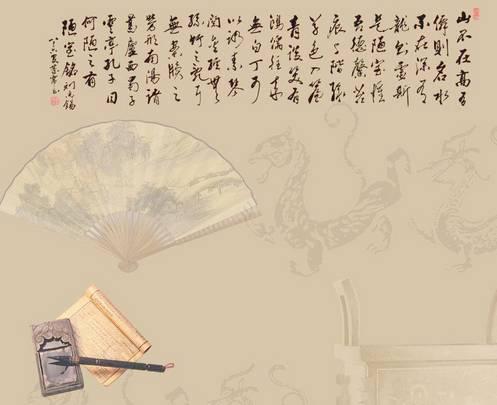 山不在高有
僊則名水
不在深有
龍則靈斯
是陋室惟
吾德馨苔
痕上階緑
草色入簾
青談笑有
鴻儒往來
無白丁可
以調素琴
閱金經無
絲竹之亂耳
無案牘之
勞形南陽諸
葛廬西蜀子
雲亭孔子曰
何陋之有
陋室銘 劉禹錫